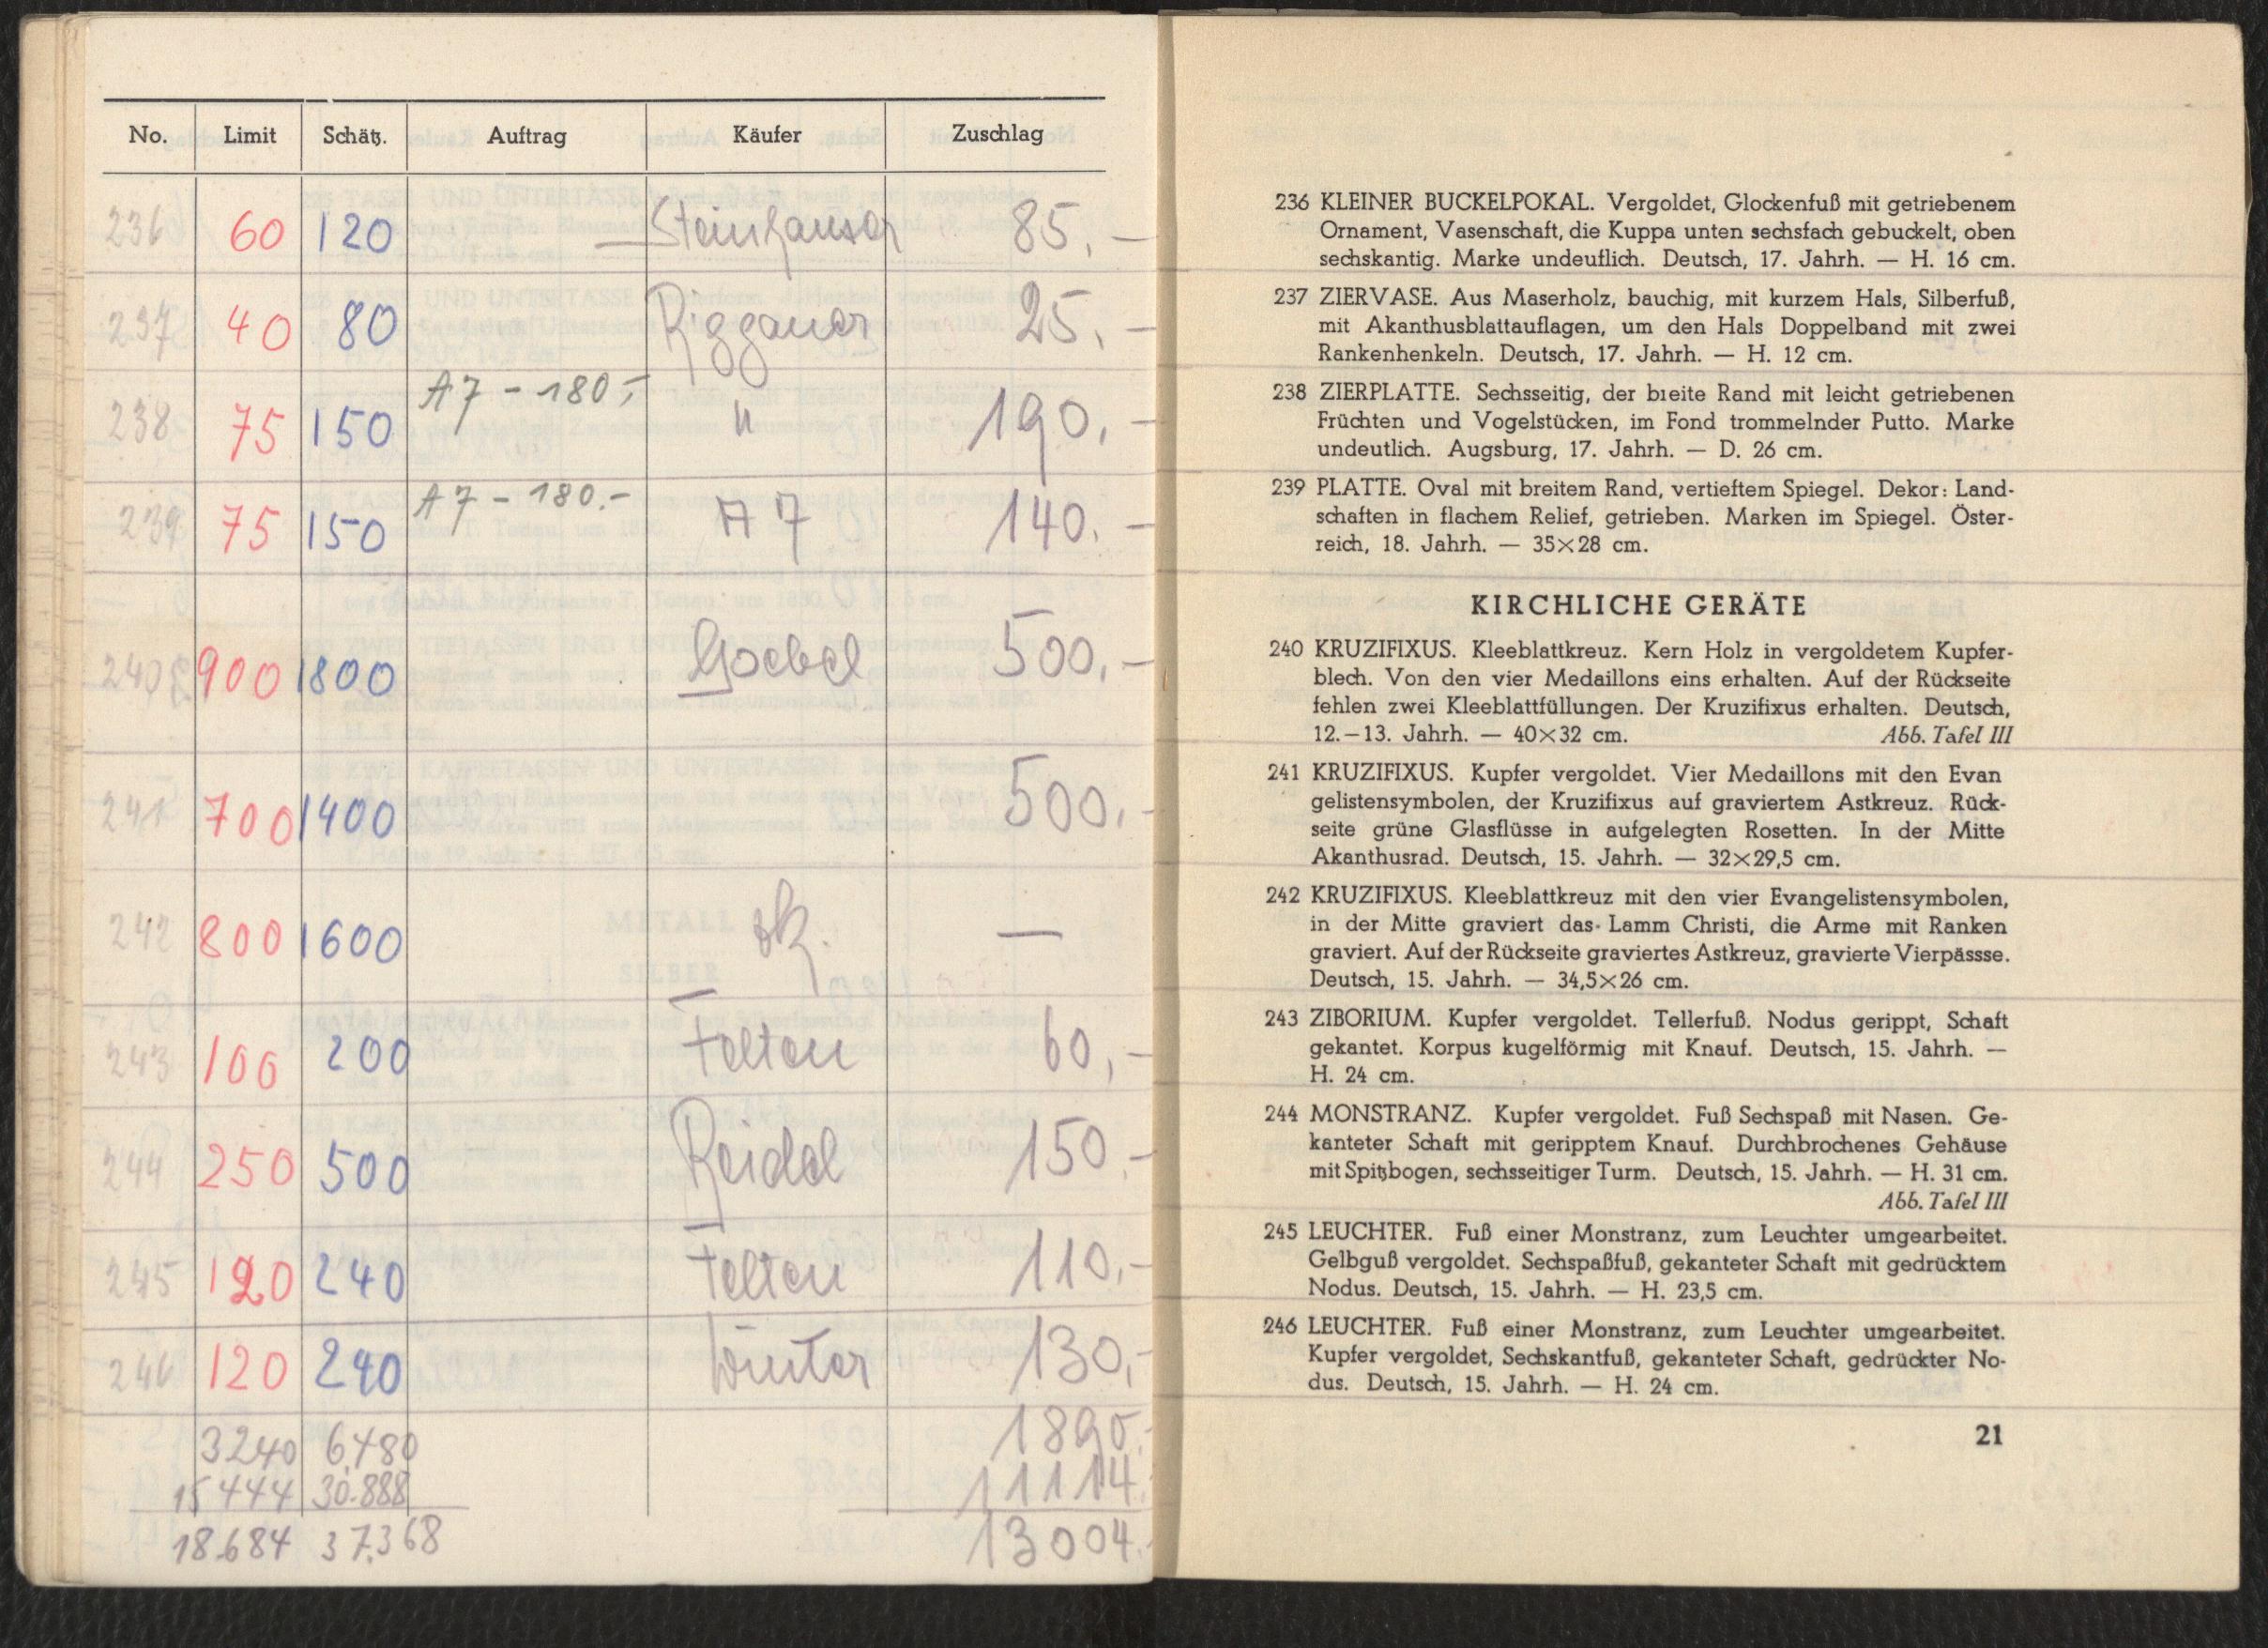 No. Limit Schätz. Auftrag Käufer Zuschlag
236 60 120 Steinhauser 85,—
237 40 80 Riggauer 25,—
A7 - 180,-
238 75 150 " 190,—
A7 - 180.-
239 75 150 A7 140.—
240 900 1800 Goebel 500,—
241 700 1400 500,—
242 800 1600 zk. —
243 100 200 Felten 60,—
244 250 500 Reidel 150.—
245 120 240 Felten 110,—
246 120 240 Winter 130,—
3240 6.480 1890.-
15444 30.888 11114.
18.684 37.368 13004.-
236 KLEINER BUCKELPOKAL. Vergoldet, Glockenfuß mit getriebenem
Ornament, Vasenschaft, die Kuppa unten sechsfach gebuckelt, oben
sechskantig. Marke undeutlich. Deutsch, 17. Jahrh. — H. 16 cm.
237 ZIERVASE. Aus Maserholz, bauchig, mit kurzem Hals, Silberfuß,
mit Akanthusblattauflagen, um den Hals Doppelband mit zwei
Rankenhenkeln. Deutsch, 17. Jahrh. — H. 12 cm.
238 ZIERPLATTE. Sechsseitig, der breite Rand mit leicht getriebenen
Früchten und Vogelstücken, im Fond trommelnder Putto. Marke
undeutlich. Augsburg, 17. Jahrh. — D. 26 cm.
239 PLATTE. Oval mit breitem Rand, vertieftem Spiegel. Dekor: Land-
schaften in flachem Relief, getrieben. Marken im Spiegel. Öster-
reich, 18. Jahrh. — 35×28 cm.
KIRCHLICHE GERÄTE
240 KRUZIFIXUS. Kleeblattkreuz. Kern Holz in vergoldetem Kupfer-
blech. Von den vier Medaillons eins erhalten. Auf der Rückseite
fehlen zwei Kleeblattfüllungen. Der Kruzifixus erhalten. Deutsch,
12.–13. Jahrh. — 40×32 cm. Abb. Tafel III
241 KRUZIFIXUS. Kupfer vergoldet. Vier Medaillons mit den Evan
gelistensymbolen, der Kruzifixus auf graviertem Astkreuz. Rück-
seite grüne Glasflüsse in aufgelegten Rosetten. In der Mitte
Akanthusrad. Deutsch, 15. Jahrh. — 32×29,5 cm.
242 KRUZIFIXUS. Kleeblattkreuz mit den vier Evangelistensymbolen,
in der Mitte graviert das Lamm Christi, die Arme mit Ranken
graviert. Auf der Rückseite graviertes Astkreuz, gravierte Vierpässse.
Deutsch, 15. Jahrh. — 34,5×26 cm.
243 ZIBORIUM. Kupfer vergoldet. Tellerfuß. Nodus gerippt, Schaft
gekantet. Korpus kugelförmig mit Knauf. Deutsch, 15. Jahrh. —
H. 24 cm.
244 MONSTRANZ. Kupfer vergoldet. Fuß Sechspaß mit Nasen. Ge-
kanteter Schaft mit geripptem Knauf. Durchbrochenes Gehäuse
mit Spitzbogen, sechsseitiger Turm. Deutsch, 15. Jahrh. — H. 31 cm.
Abb. Tafel III
245 LEUCHTER. Fuß einer Monstranz, zum Leuchter umgearbeitet.
Gelbguß vergoldet. Sechspaßfuß, gekanteter Schaft mit gedrücktem
Nodus. Deutsch, 15. Jahrh. — H. 23,5 cm.
246 LEUCHTER. Fuß einer Monstranz, zum Leuchter umgearbeitet.
Kupfer vergoldet, Sechskantfuß, gekanteter Schaft, gedrückter No-
dus. Deutsch, 15. Jahrh. — H. 24 cm.
21